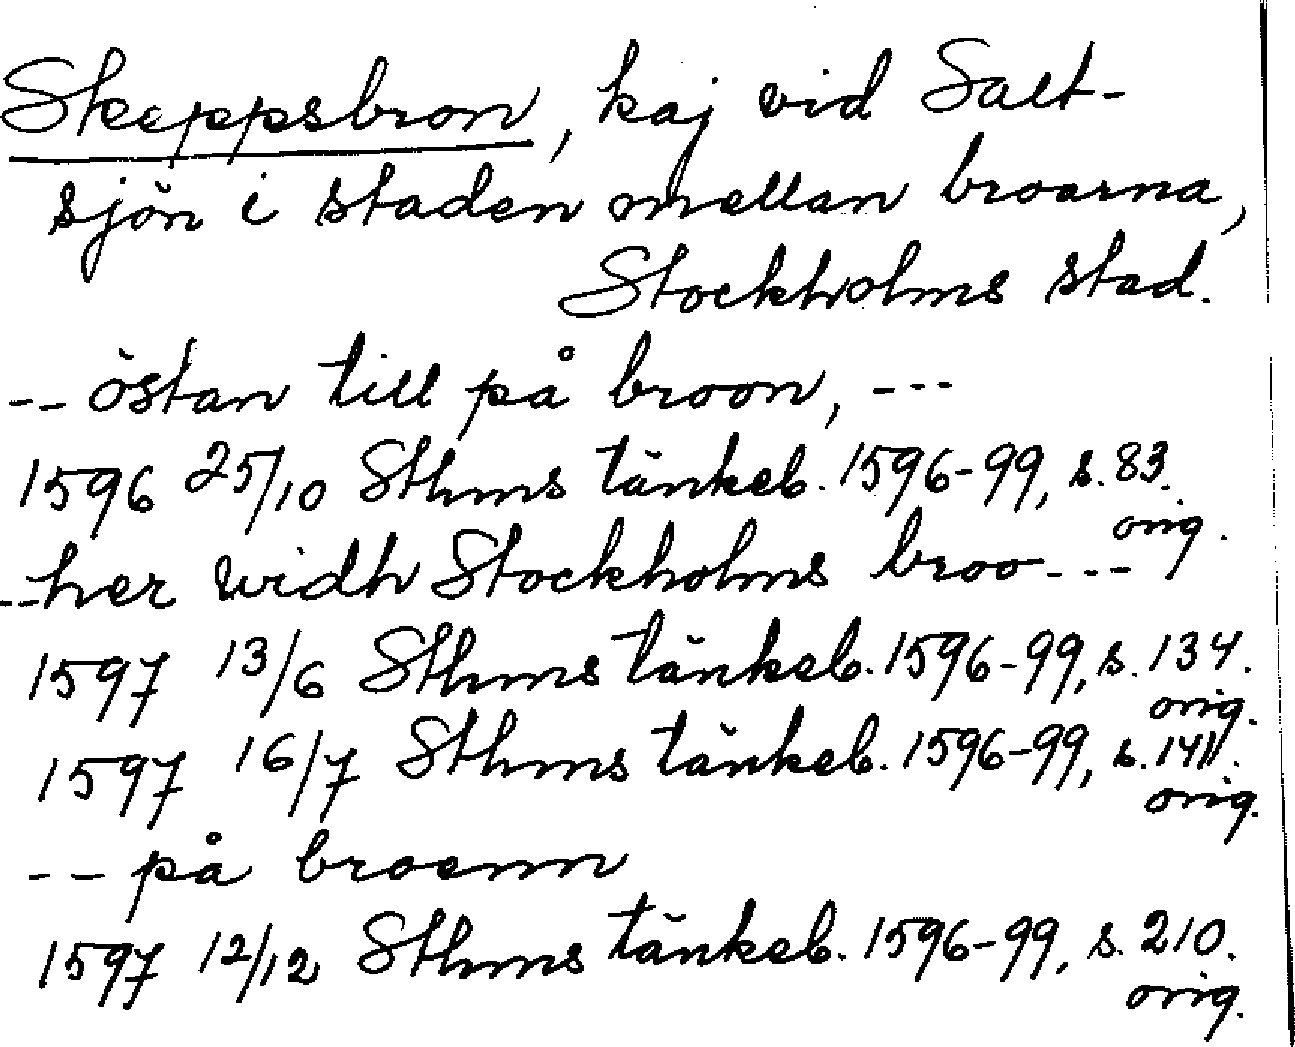 Skeppsbron, kaj vid Salt-
sjön i staden mellan broarna,
Stockholms stad.
-- östan till på broon, ---
1596 25/10 Sthms tänkeb. 1596-99, s. 83.
orig.
--her widh Stockholms broo---
1597 13/6 Sthms tänkeb. 1596-99, s. 134.
orig.
1597 16/7 Sthms tänkeb. 1596-99, s. 141.
orig.
-- på broenn
1597 12/12 Sthms tänkeb. 1596-99, s. 210.
orig.